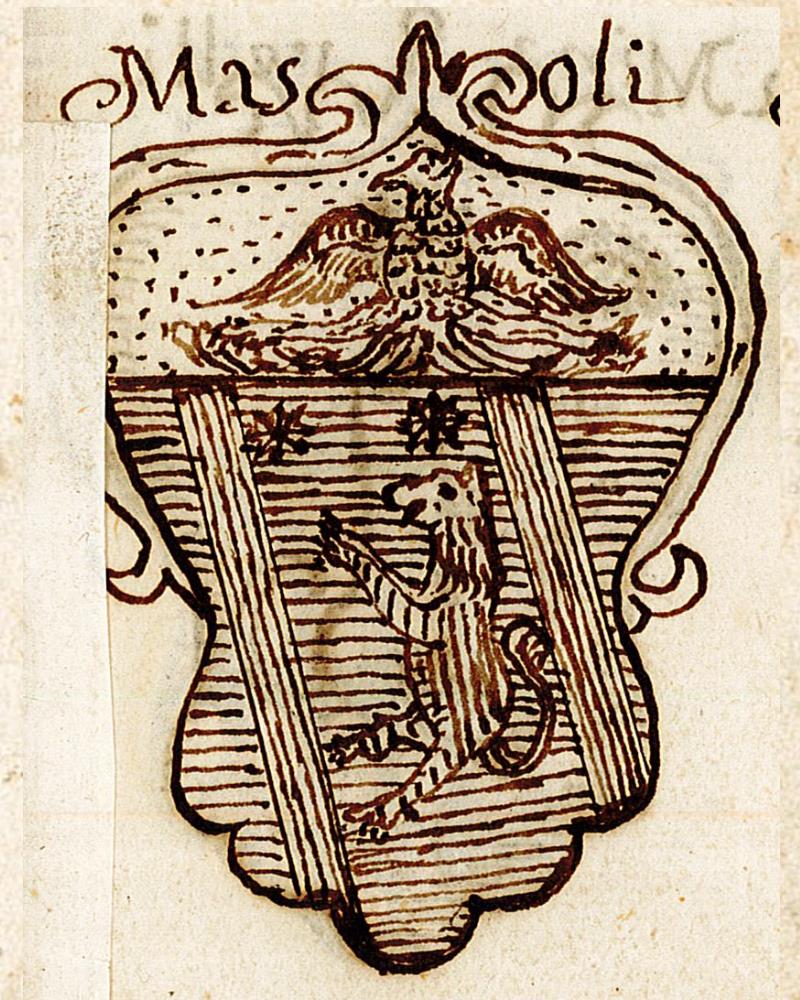 Mas poli